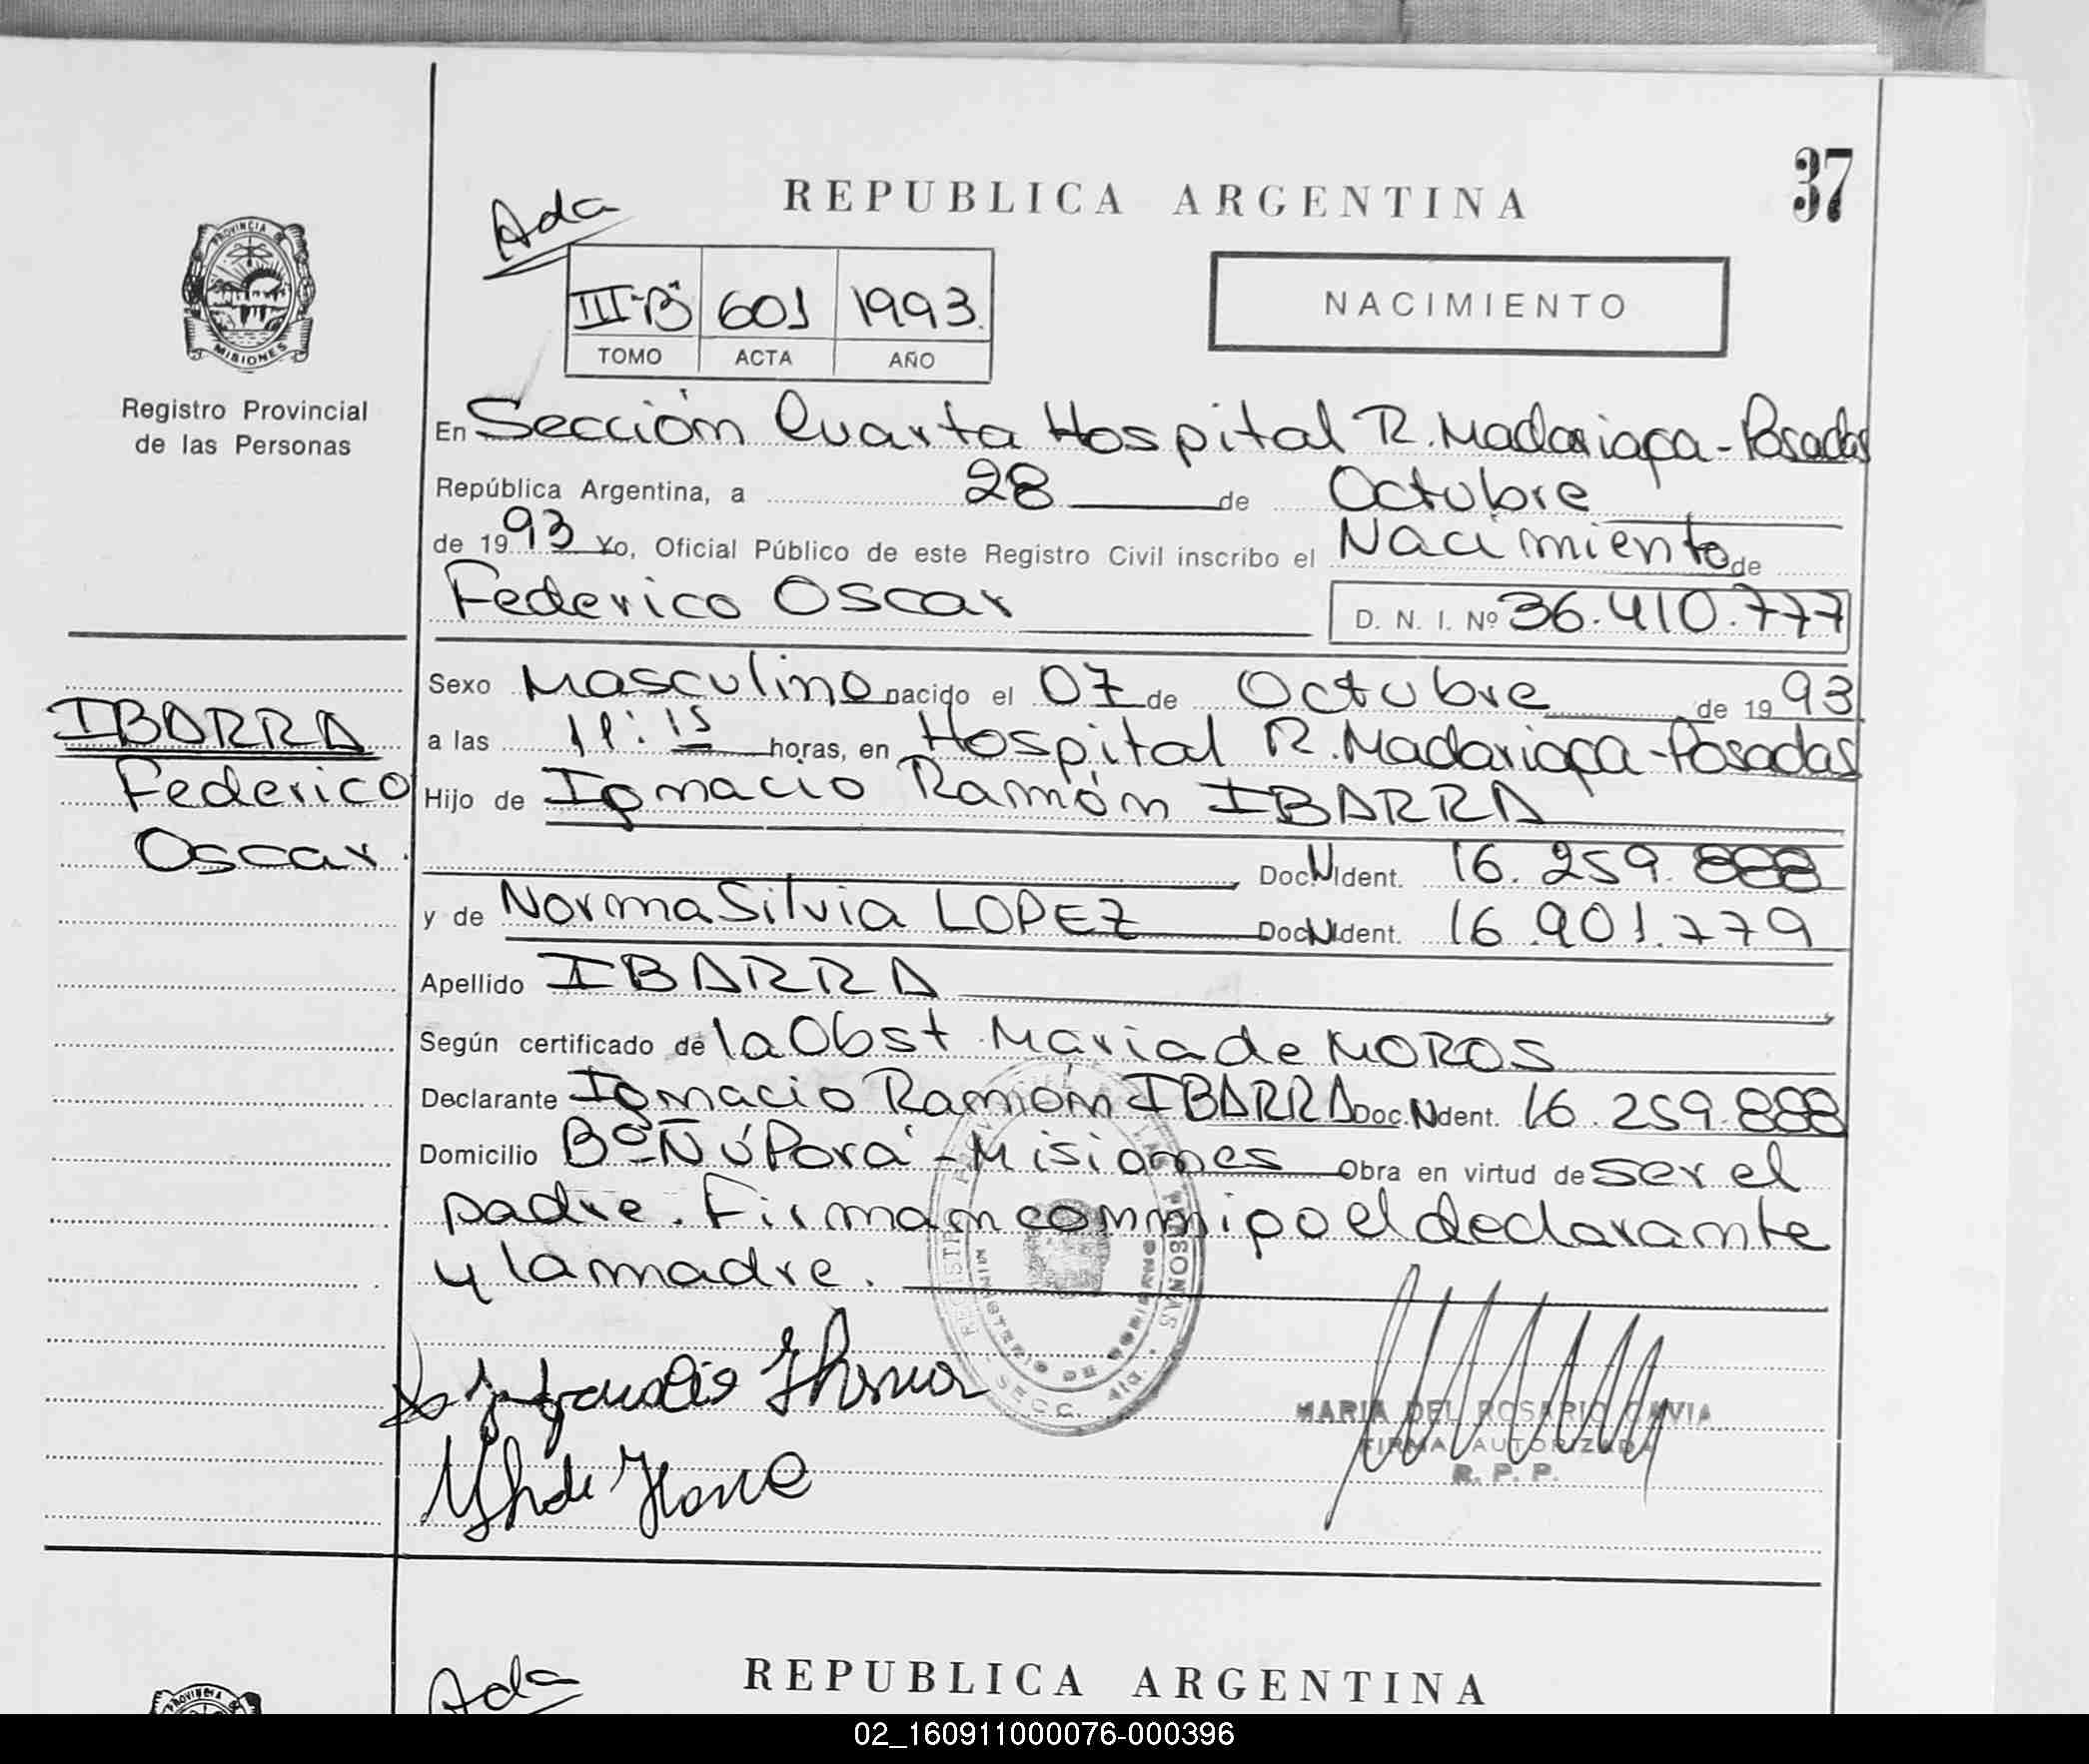 37
REPUBLICA ARGENTINA
Ada
III-"B" 601 1993.
TOMO ACTA AÑO
NACIMIENTO
PROVINCIA DE MISIONES
Registro Provincial
de las Personas
En Sección Cuarta Hospital R. Madariaga - Posadas
República Argentina, a 28 de Octubre
de 1993 Yo, Oficial Público de este Registro Civil inscribo el Nacimiento de
Federico Oscar D. N. I. Nº 36.410.777
Sexo Masculino nacido el 07 de Octubre de 1993
IBARRA
Federico
Oscar.
a las 11:15 horas, en Hospital R. Madariaga - Posadas
Hijo de Ignacio Ramón IBARRA
Doc. N. Ident. 16.259.888
y de Norma Silvia LOPEZ Doc. N. Ident. 16.901.779
Apellido IBARRA
Según certificado de la Obst. Maria de MOROS
Declarante Ignacio Ramón IBARRA Doc. N. Ident. 16.259.888
Domicilio Bº Ñú Porá - Misiones Obra en virtud de ser el
padre. Firman conmigo el declarante
y la madre.
MINISTERIO DE GOBIERNO
SECC. 4ta.
MARIA DEL ROSARIO GAVIA
FIRMA AUTORIZADA
R. P. P.
Ada
REPUBLICA ARGENTINA
02_160911000076-000396